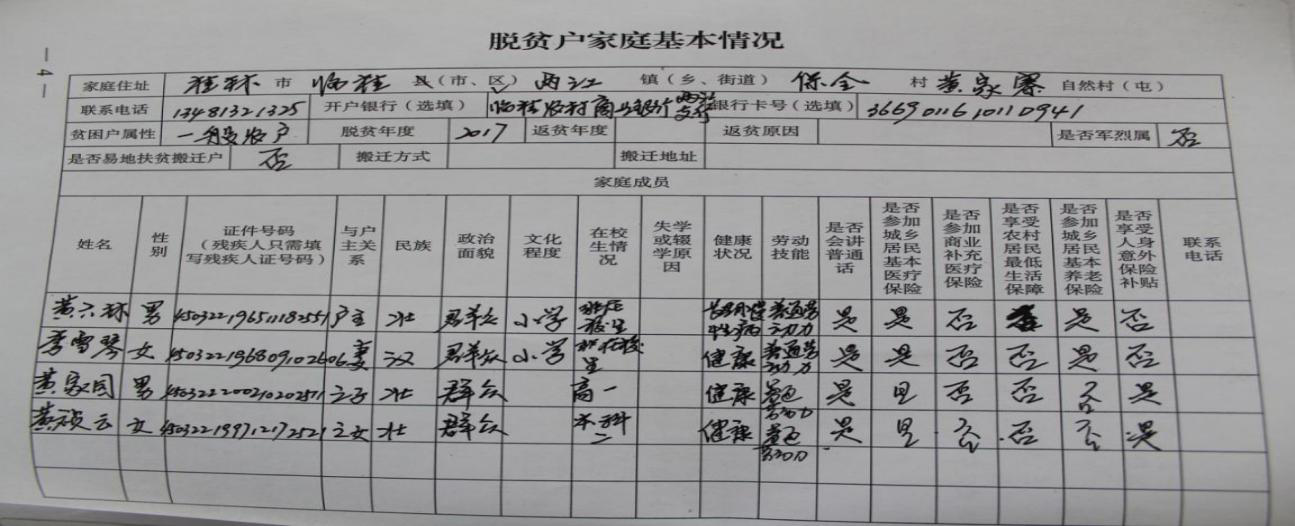 脱贫户家庭基本情况
— 4 —
家庭住址 桂林 市 临桂 县(市、区) 两江 镇(乡、街道) 保全 村 黄家寨 自然村(屯)
联系电话 13481321325 开户银行(选填) 临桂农村商业银行两江支行 银行卡号(选填) 3669 0116 1011 0941
贫困户属性 一般农户 脱贫年度 2017 返贫年度 返贫原因 是否军烈属 否
是否易地扶贫搬迁户 否 搬迁方式 搬迁地址
家庭成员
姓名 性别 证件号码(残疾人只需填写残疾人证号码) 与户主关系 民族 政治面貌 文化程度 在校生情况 失学或辍学原因 健康状况 劳动技能 是否会讲普通话 是否参加城乡居民基本医疗保险 是否参加商业补充医疗保险 是否享受农村居民最低生活保障 是否参加城乡居民基本养老保险 是否享受人身意外保险补贴 联系电话
男 户主 壮 群众 小学 非在校生 长期慢性病 普通劳动力 是 是 否 是 否
女 妻 汉 群众 小学 非在校生 健康 普通劳动力 是 是 否 否 是 否
男 之子 壮 群众 高一 健康 普通劳动力 是 是 否 否 否 是
女 之女 壮 群众 本科二 健康 普通劳动力 是 是 否 否 否 是